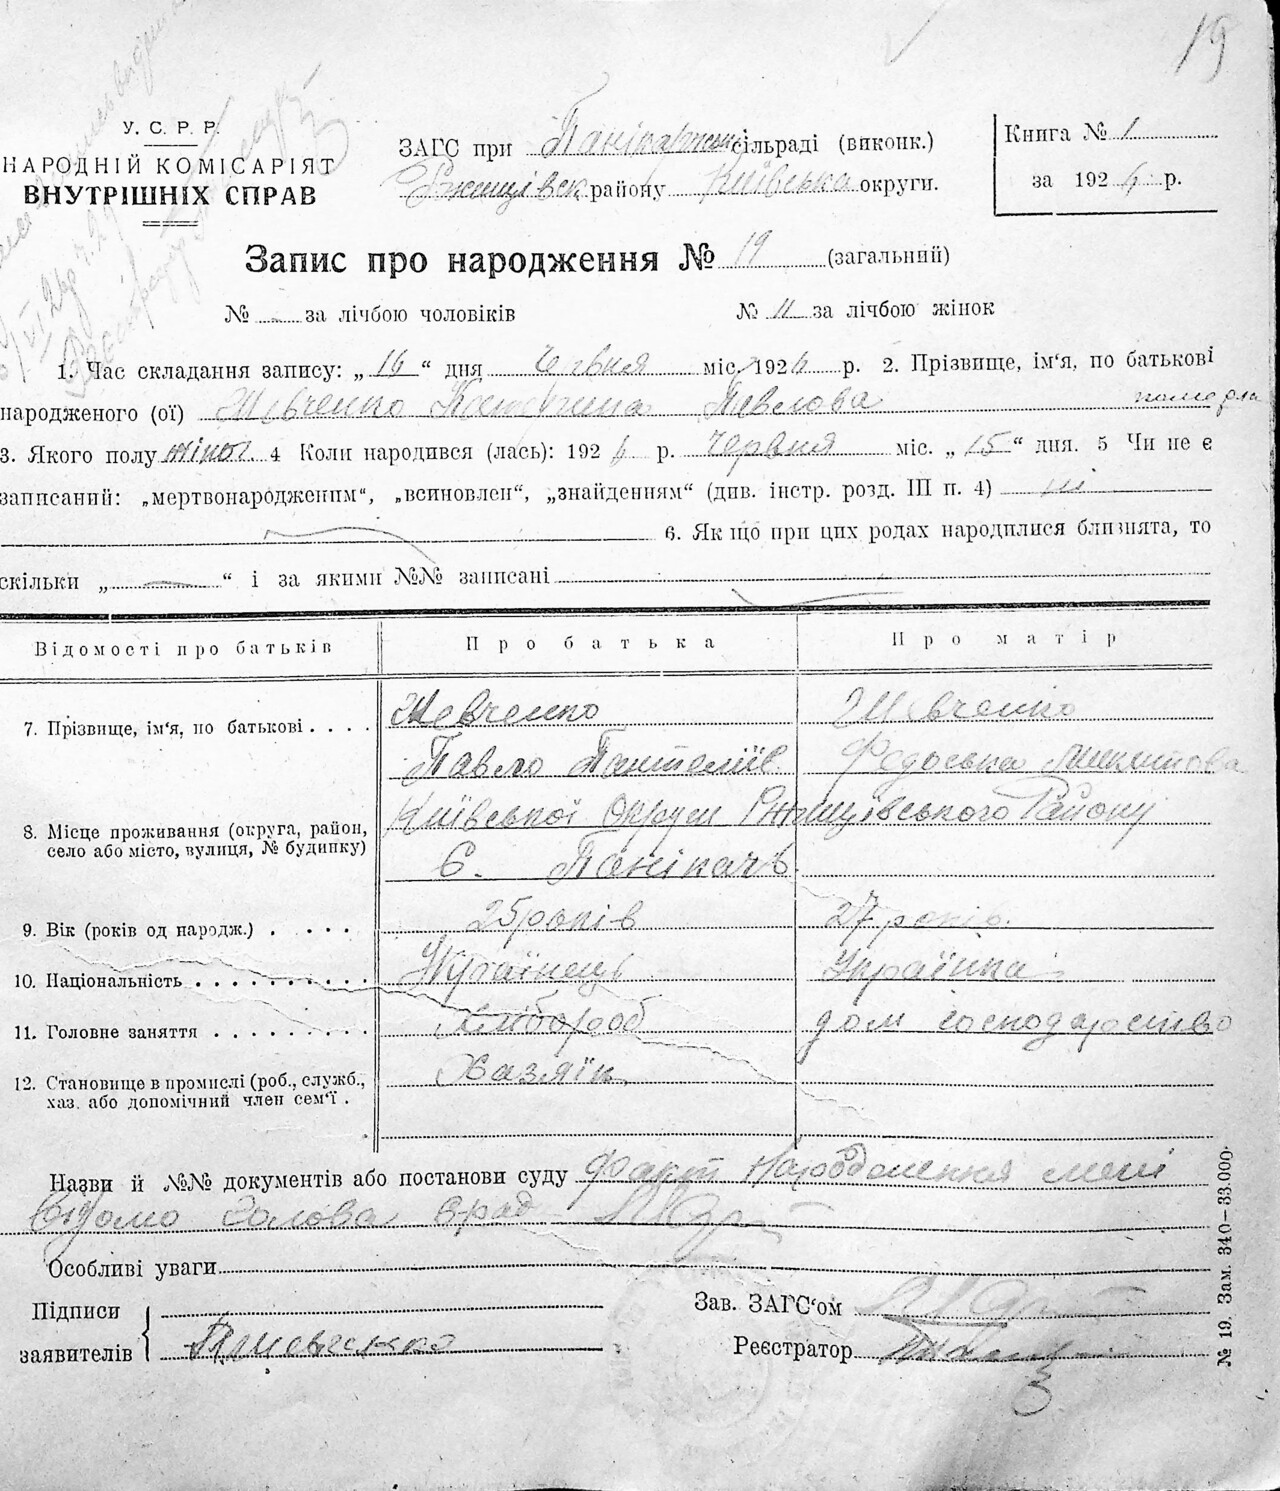 19
У. С. Р. Р.
НАРОДНІЙ КОМІСАРІЯТ
ВНУТРІШНІХ СПРАВ
ЗАГС при сільраді (виконк.)
Ржищівськ району Київська округи.
Книга № 1
за 1926 р.
Запис про народження № 19 (загальний)
№ - за лічбою чоловіків № 11 за лічбою жінок
1. Час складання запису: „ 16 “ дня Червня міс. 1926 р. 2. Прізвище, ім‘я, по батькові
народженого (ої) Шевченко Катерина Павлова померла
3. Якого полу жіноч. 4 Коли народився (лась): 1926 р. Червня міс. „ 15 “ дня. 5 Чи не є
записаний: „мертвонародженим“, „всиновлен“, „знайденням“ (див. інстр. розд. III п. 4) ні
6. Як що при цих родах народилися близнята, то
скільки „ — “ і за якими №№ записані
Відомості про батьків Про батька Про матір
7. Прізвище, ім‘я, по батькові . . . . Шевченко Шевченко
Павло Пантеліїв Федоська Микитова
8. Місце проживання (округа, район,
село або місто, вулиця, № будинку)
Київської Округи Ржищівського Району
С. Панікарчь
9. Вік (років од народж.) . . . . 25 років 27 років.
10. Національність . . . . . . . . . . Українець Українка
11. Головне заняття . . . . . . . . Хлібороб дом господарство
12. Становище в промислі (роб., служб.,
хаз. або допомічний член сем‘ї .
Хазяїн
Назви й №№ документів або постанови суду факт Народження мені
відомо Голова срад
Особливі уваги
Підписи
заявителів
ПШевченко
Зав. ЗАГС‘ом
Реєстратор
№ 19. Зам. 340—33.000.